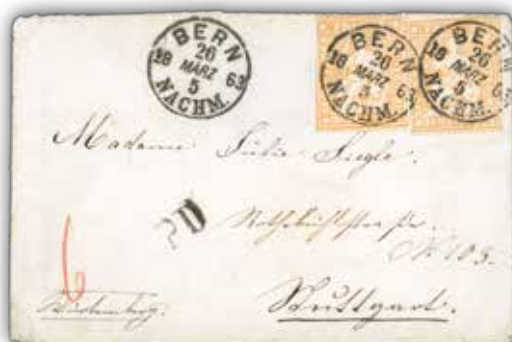 BERN
26
18 MÄRZ 63
5
NACHM.
BERN
26
18 MÄRZ 63
5
NACHM.
BERN
26
18 MÄRZ 63
5
NACHM.
Madame Julie Siegle.
PD
No 103.
6
Stuttgart.